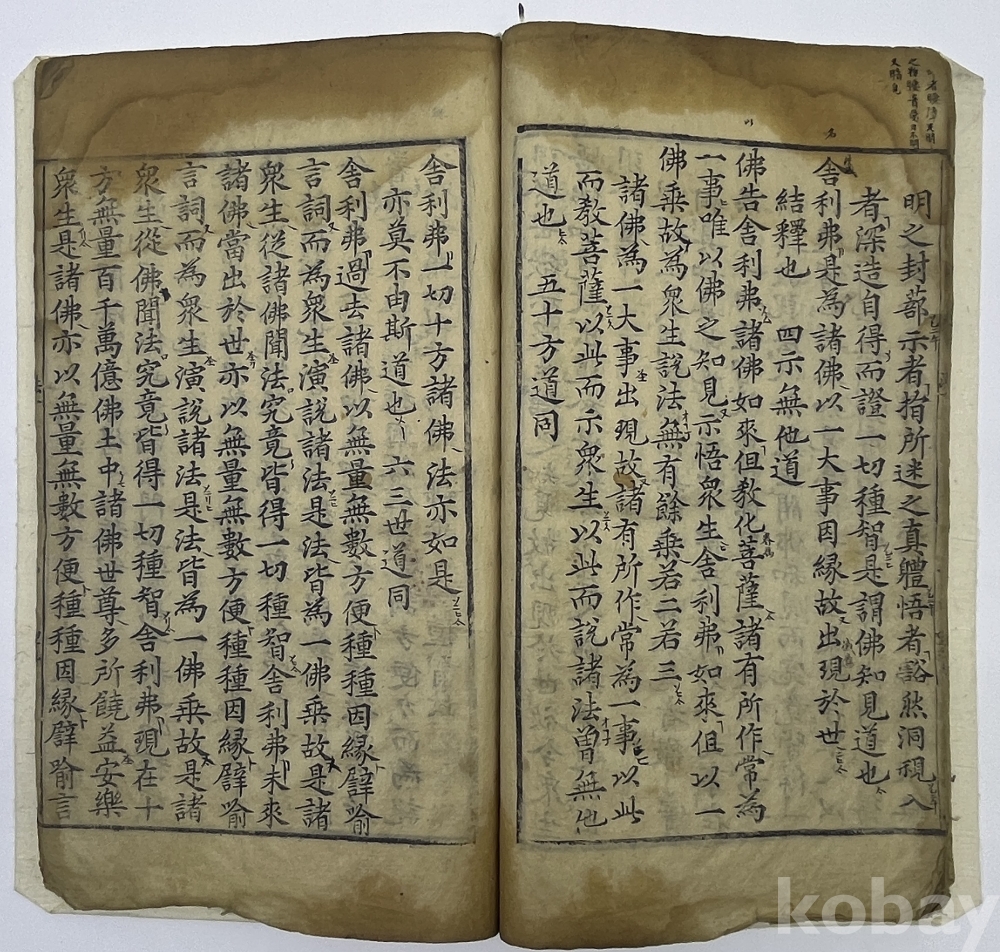 明之封蔀示者指所迷之真軆悟者豁然洞視入
者深造自得而證一切種智是謂佛知見道也
舎利弗是為諸佛以一大事因緣故出現於世
結釋也　四示無他道
佛告舎利弗諸佛如來但敎化菩薩諸有所作常為
一事唯以佛之知見示悟衆生舎利弗如來但以一
佛乗故為衆生說法無有餘乗若二若三
諸佛為一大事出現故諸有所作常為一事以此
而敎菩薩以此而示衆生以此而說諸法曽無他
道也　五十方道同
舎利弗一切十方諸佛法亦如是
亦莫不由斯道也　六三世道同
舎利弗過去諸佛以無量無數方便種種因緣譬喻
言詞而為衆生演說諸法是法皆為一佛乗故是諸
衆生從諸佛聞法究竟皆得一切種智舎利弗未來
諸佛當出於世亦以無量無數方便種種因緣譬喻
言詞而為衆生演說諸法是法皆為一佛乗故是諸
衆生從佛聞法究竟皆得一切種智舎利弗現在十
方無量百千萬億佛土中諸佛世尊多所饒益安樂
衆生是諸佛亦以無量無數方便種種因緣譬喻言
kobay